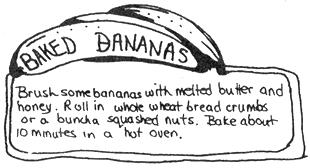 BAKED BANANAS
Brush some bananas with melted butter and
honey. Roll in whole wheat bread crumbs
or a buncha squashed nuts. Bake about
10 minutes in a hot oven.